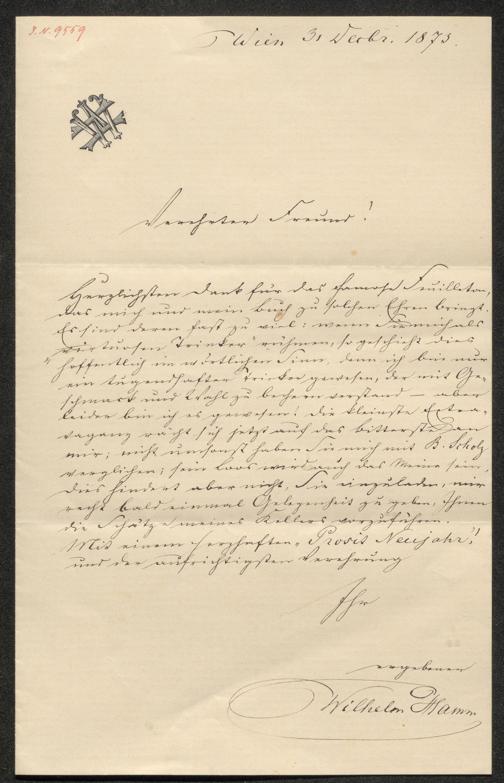 J.N. 9559
Wien 31 Decbr. 1873.
Verehrter Freund!
Herzlichsten Dank für das famose Feuilleton,
das mich und mein Buch zu solchen Ehren bringt.
Es sind deren fast zu viel; wenn Sie mich als
"virtuosen Trinker" rühmen, so geschieht dies
hoffentlich im wörtlichen Sinn, denn ich bin nur
ein tugendhafter Trinker gewesen, der mit Ge-
schmack und Wahl zu bechern verstand — aber
leider bin ich es gewesen! die kleinste Extra-
vaganz rächt sich jetzt auf das bitterste an
mir; nicht umsonst haben Sie mich mit B. Scholz
verglichen; sein Loos wird auch das Meine sein,
dies hindert aber nicht, Sie einzuladen, mir
recht bald einmal Gelegenheit zu geben, Ihnen
die Schätze meines Kellers vorzuführen.
Mit einem herzhaften "Prosit Neujahr!"
und der aufrichtigsten Verehrung
Ihr
ergebener
Wilhelm Hamm